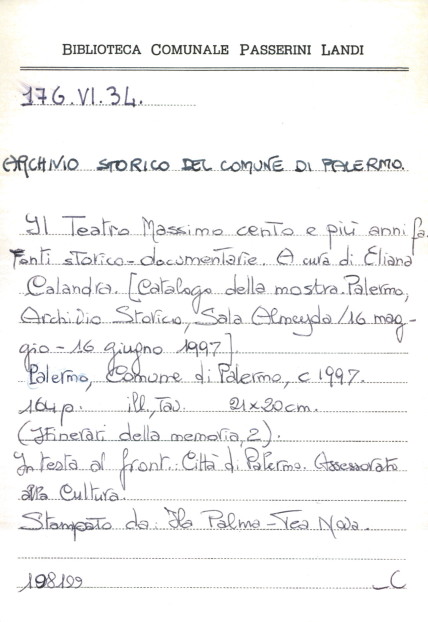 BIBLIOTECA COMUNALE PASSERINI LANDI
176.VI.34.
ARCHIVIO STORICO DEL COMUNE DI PALERMO.
Il Teatro Massimo cento e più anni fa.
Fonti storico-documentarie. A cura di Eliana
Calandra. [Catalogo della mostra. Palermo,
Archivio Storico, Sala Almeyda/16 mag-
gio-16 giugno 1997].
Palermo, Comune di Palermo, c 1997.
164 p. ill., Tav. 21x20cm.
(Itinerari della memoria, 2).
In testa al front.: Città di Palermo. Assessorato
alla Cultura.
Stampato da: Ila Palma-Tea Nova.
198199 C